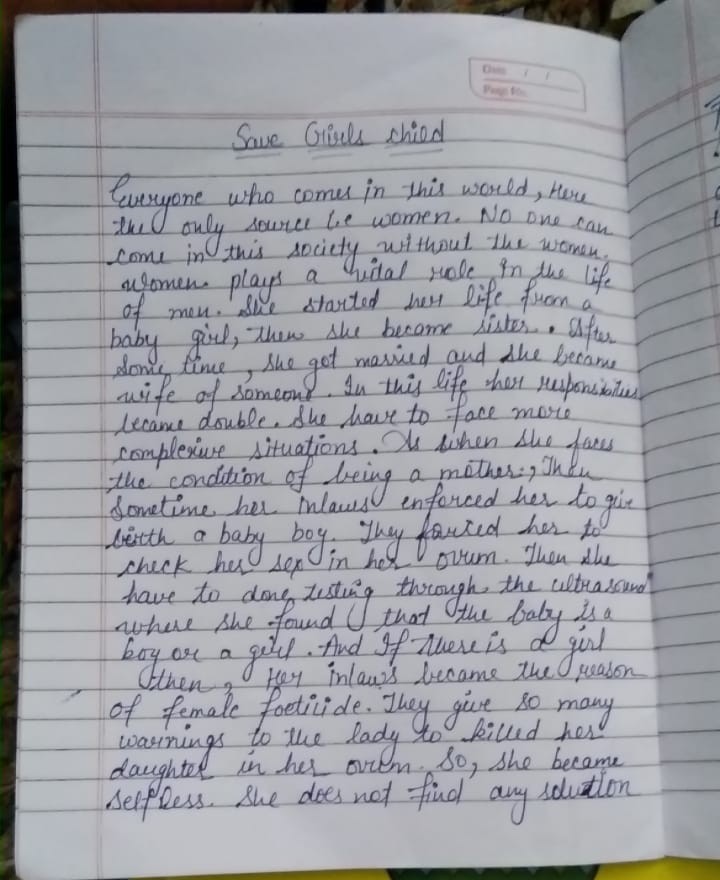 Date / /
Page No.
Save Girls child
Everyone who comes in this world, Here
the only source be women. No one can
come in this society without the women.
women plays a vital role in the life
of men. She started her life from a
baby girl, then she became sister. After
some time, she got married and she became
wife of someone. In this life her responsibilities
became double. She have to face more
complexive situations. As when she faces
the condition of being a mother, Then
sometime her inlaws enforced her to give
birth a baby boy. They forced her to
check her sex in her ovum. Then she
have to done testing through the ultrasound
where she found that the baby is a
boy or a girl. And If there is a girl
then, Her inlaws became the reason
of female foeticide. They give so many
warnings to the lady to killed her
daughter in her ovum. So, she became
selfless. She does not find any solution